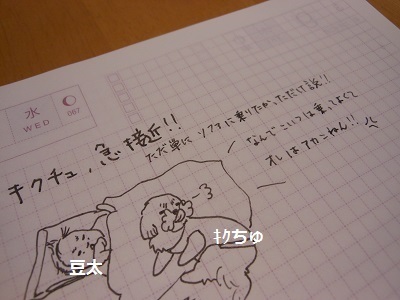 水
WED
067
キクチュ、急接近!!
ただ単に ソファに乗りたかっただけ説!!
なんでこいつは乗ってよくて
オレはアカンねん!!
豆太
ｷｸちゅ